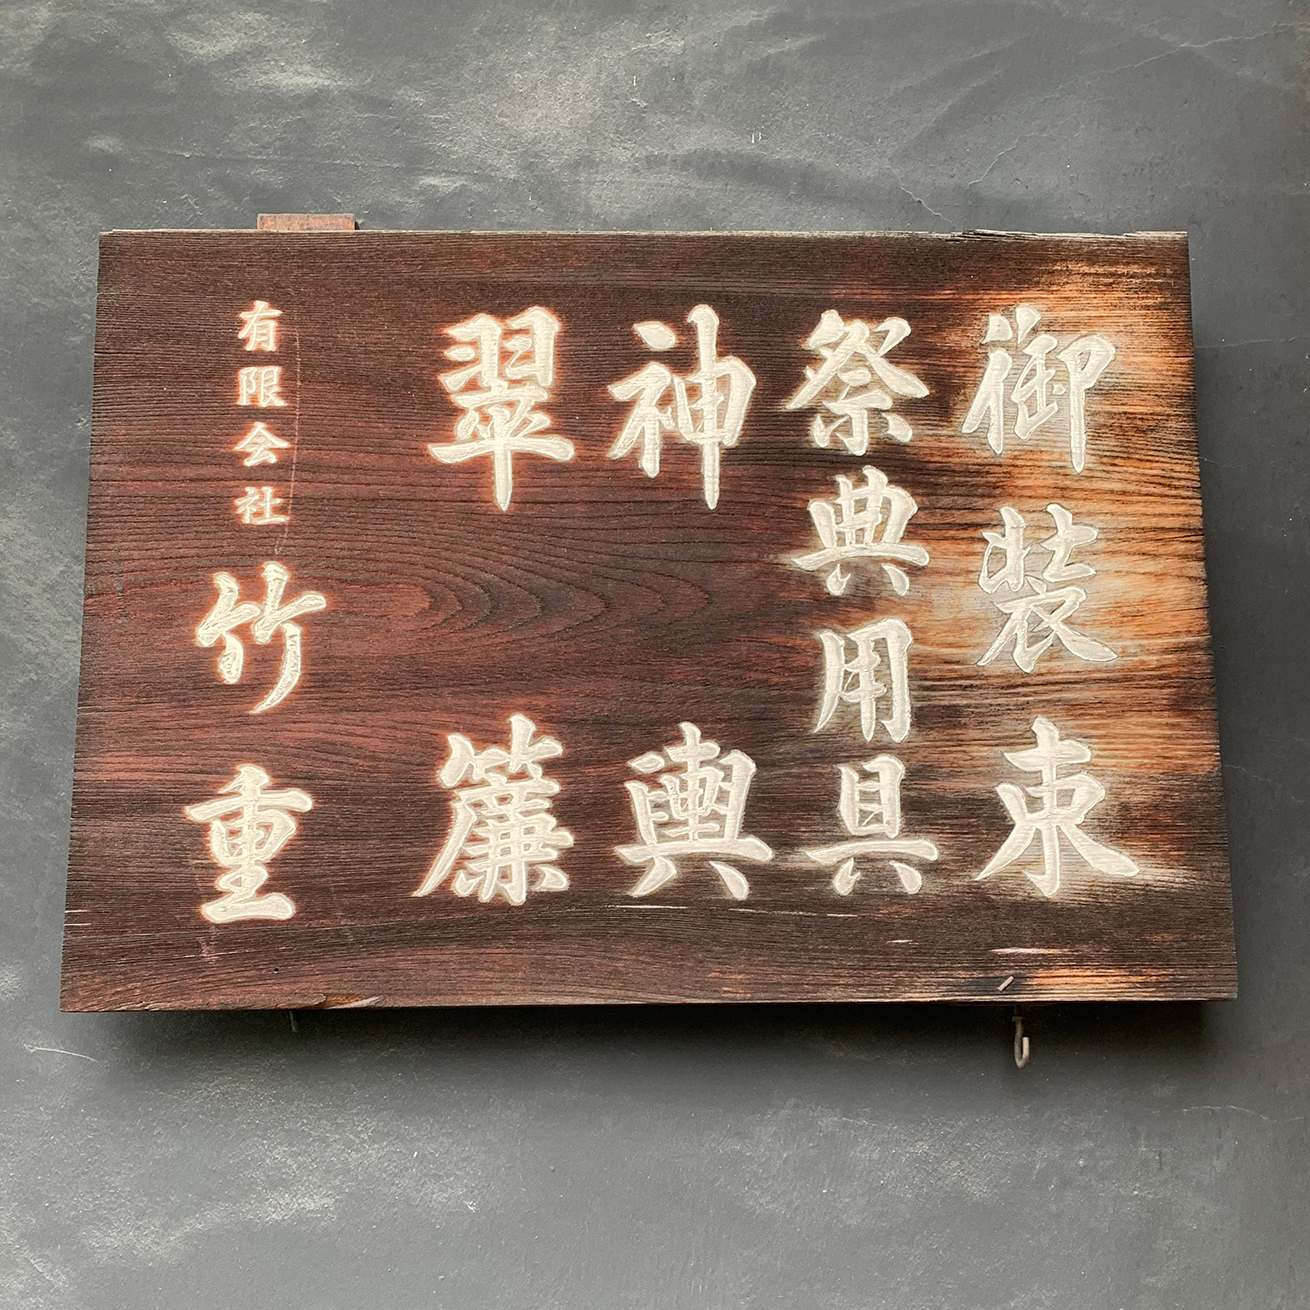 御装束
祭典用具
神輿
翠簾
有限会社竹重